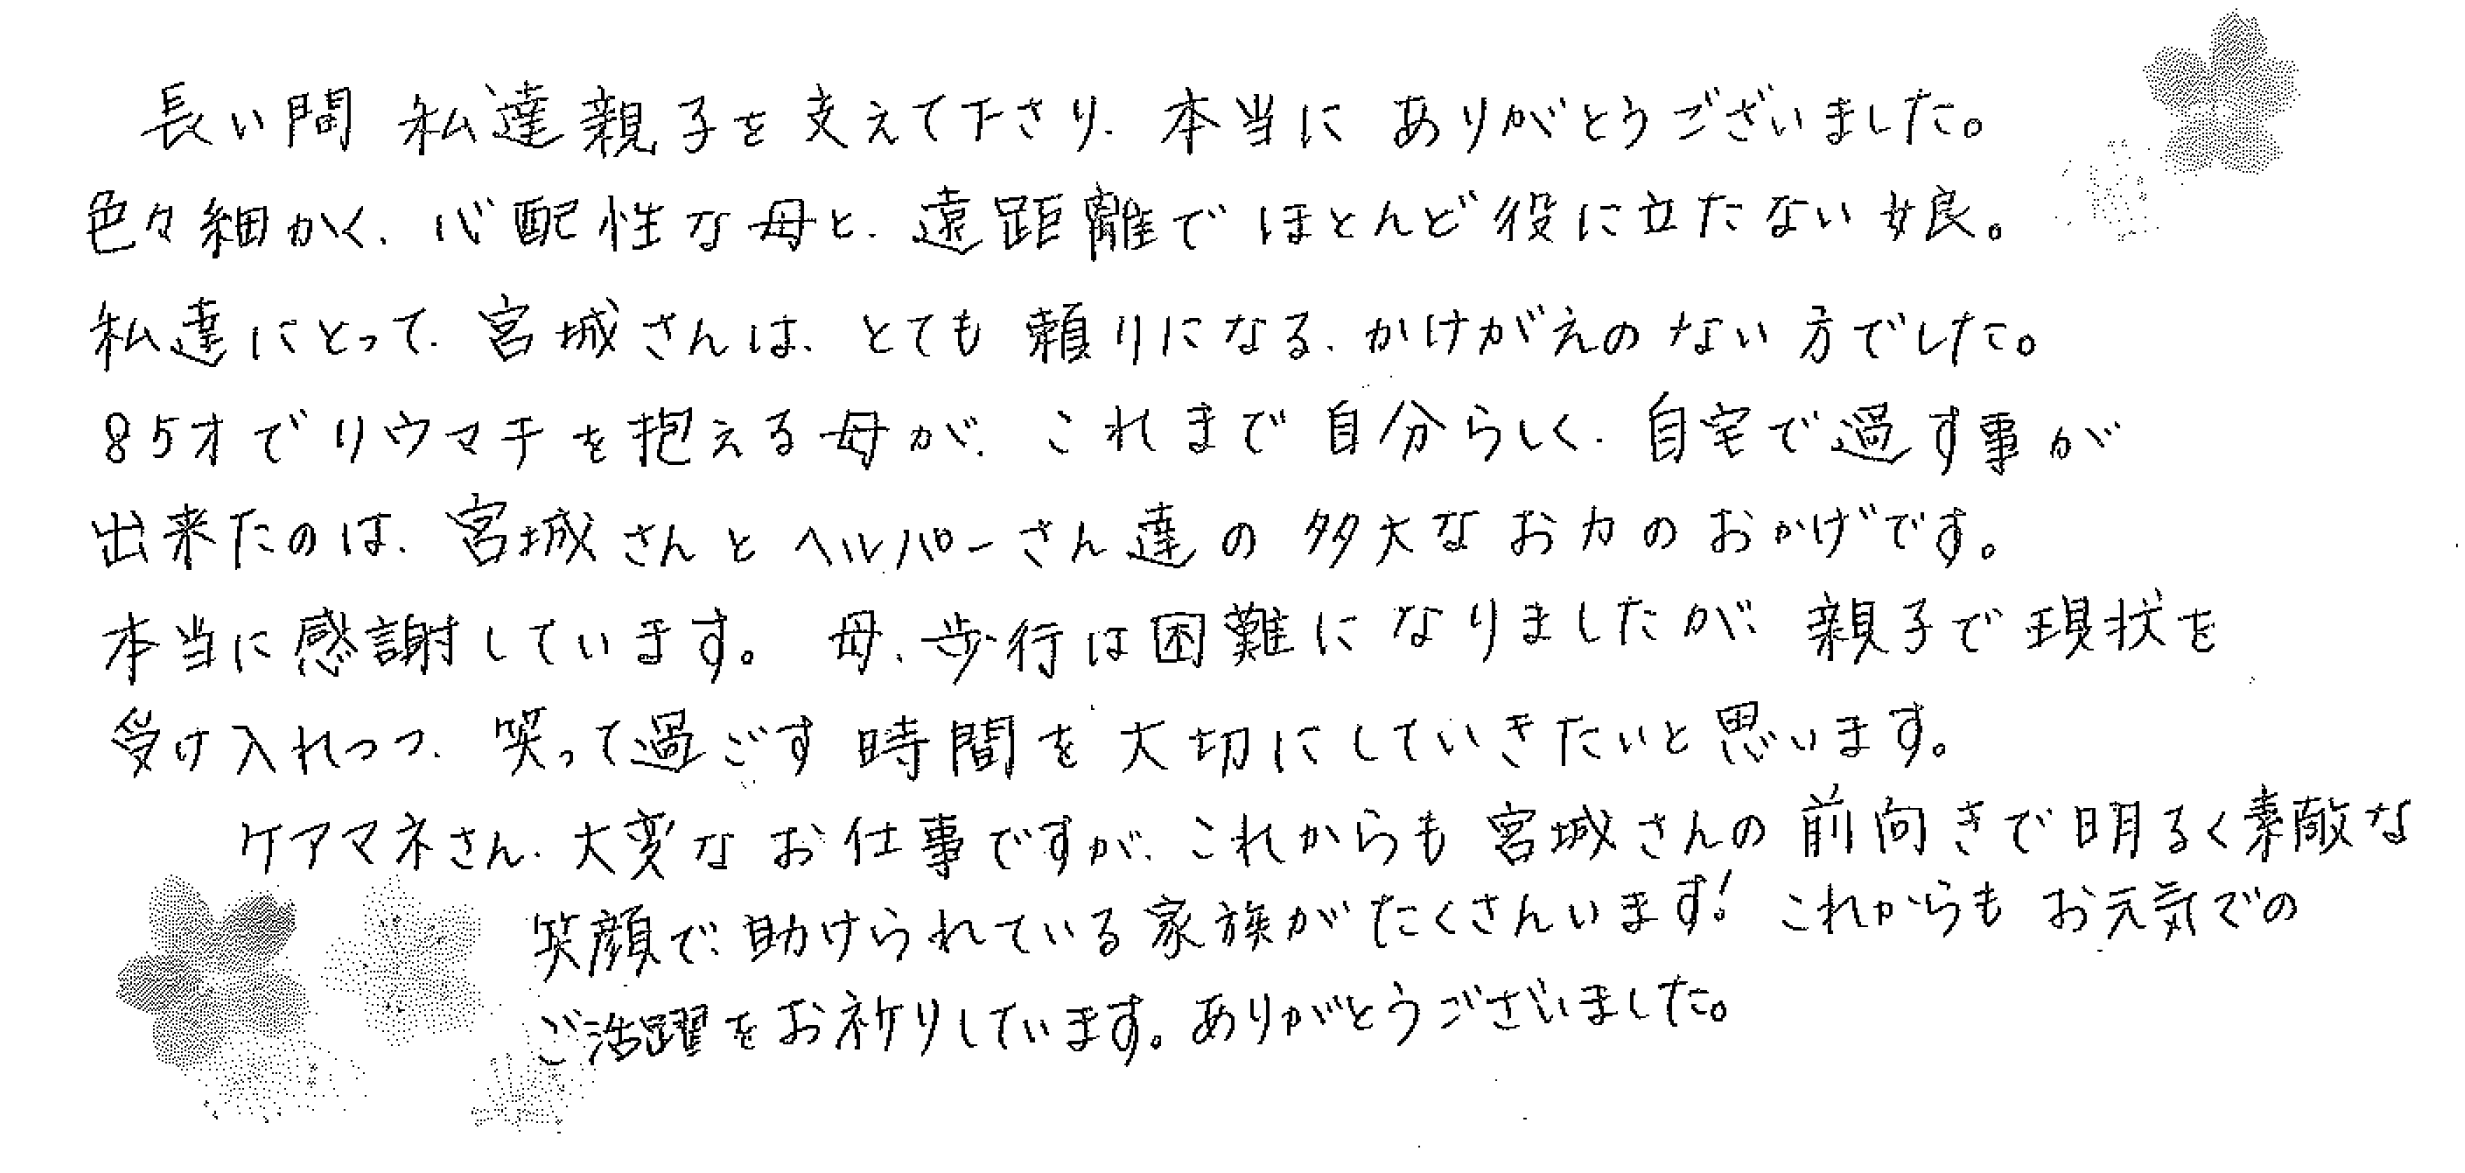 長い間 私達親子を支えて下さり、本当に ありがとうございました。
色々細かく、心配性な母と、遠距離で ほとんど役に立たない娘。
私達にとって、宮城さんは、とても 頼りになる、かけがえのない方でした。
85才でリウマチを抱える母が、これまで自分らしく、自宅で過す事が
出来たのは、宮城さんとヘルパーさん達の多大なお力のおかげです。
本当に感謝しています。 母、歩行は困難になりましたが、親子で現状を
受け入れつつ、笑って過ごす時間を大切にしていきたいと思います。
ケアマネさん、大変なお仕事ですが、これからも宮城さんの前向きで明るく素敵な
笑顔で、助けられている家族がたくさんいます! これからもお元気での
ご活躍をお祈りしています。ありがとうございました。